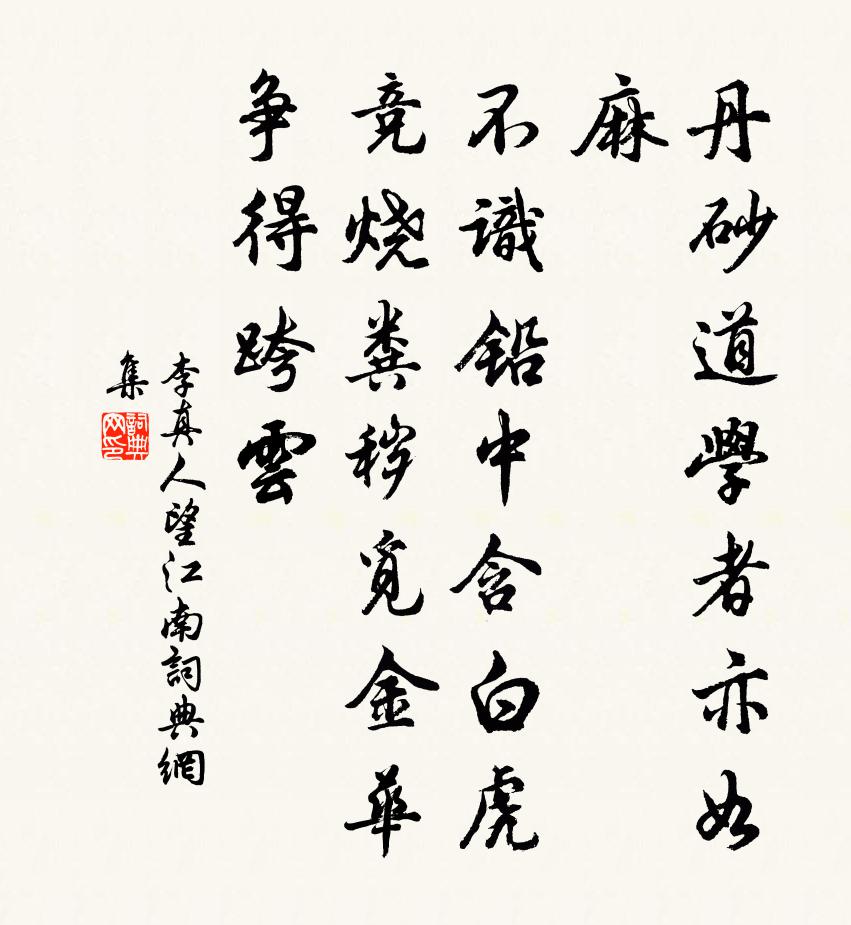 丹砂道學者亦如
麻
不識鉛中含白虎
竞烧糞秽覓金華
争得跨雲
李真人望江南詞典網
集
詞典
网印